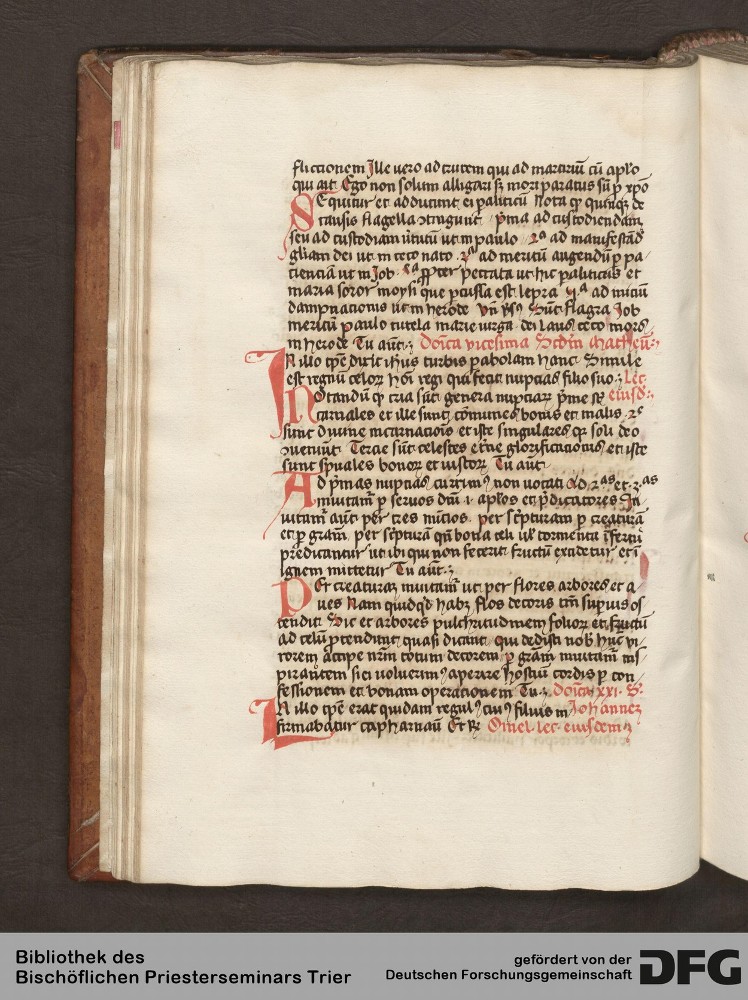 flictionem Ille vero ad crucem qui ad martirium cu aplo
qui ait Ego non solum alligari sz mori paratus su p xpo
Sequitur et adducunt ei paliticu Nota q quinqz de
causis flagella gtingunt pma ad custodiendam
seu ad custodiam ututu ut in paulo 2a ad manifestad
glam dei ut in ceco nato 3a ad meritu augendu p pa
cienciam ut in Job 4a ppter peccata ut hic paliticus et
maria soror moysi que pcussa est lepra 5a ad iniciu
dampnacionis ut in herode Vn vs9 Sut flagra Job
meritu paulo tutela marie virga dei laus ceco mors
in herode Tu aut Donica vicesima Scdm Matheu
In illo tpe dicit ihus turbis pabolam hanc Simile
est regnu celoz hoi regi qui fecit nupcias filio suo Lec
Notandu q tria sut genera nupciaz pme st eiusd
carnales et ille sunt comunes bonis et malis 2e
sunt divine incarnacois et iste singulares qz soli deo
gveniunt Tercie sut celestes eterne glorificacionis et iste
sunt spuales bonoz et iustoz Tu aut
Ad pmas nupcias currim9 non vocati Ad 2as et 3as
invitam p servos dni i aplos et pdicatores In
vitam aut per tres nucios per scpturam p creatura
et p gram per scptura qn bona celi vl tormenta inferni
predicantur ut ibi qui non fecerit fructu excidetur et i
ignem mittetur Tu aut
Per creaturas invitam ut per flores arbores et a
ves Nam quidqd habz flos decoris tm supius os
tendit Sic et arbores pulchritudinem folioz et fructu
ad celu ptendunt quasi dicant qui dedisti nob huc vi
rorem accipe nrm totum decorem p gram invitam ins
pirantem si ei voluerim9 aperire hostiu cordis p con
fessionem et bonam operacionem Tu Donica xxi S
In illo tpe erat quidam regul9 cui9 filius in Johannez
firmabatur capharnau Et R Omel lec eiusdem
Bibliothek des
Bischöflichen Priesterseminars Trier
gefördert von der
Deutschen Forschungsgemeinschaft
DFG